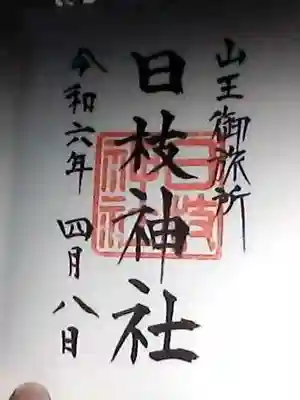 山王御旅所
日枝神社
日枝神社
令和六年 四月八日